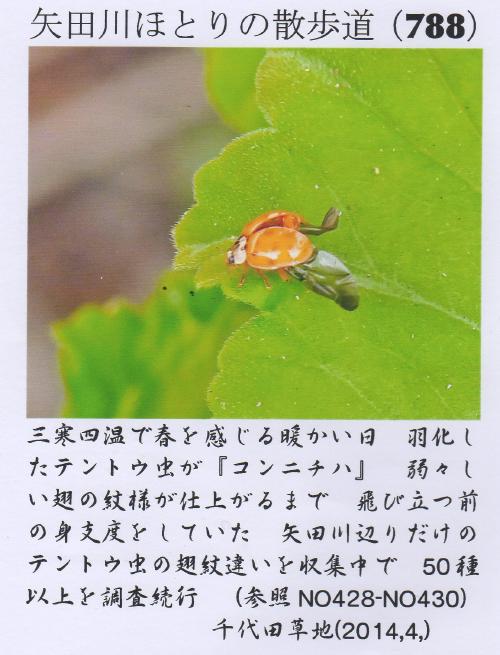 矢田川ほとりの散歩道（788）
三寒四温で春を感じる暖かい日　羽化し
たテントウ虫が『コンニチハ』　弱々し
い翅の紋様が仕上がるまで　飛び立つ前
の身支度をしていた　矢田川辺りだけの
テントウ虫の翅紋違いを収集中で　50種
以上を調査続行　（参照NO428-NO430）
千代田草地(2014,4,)